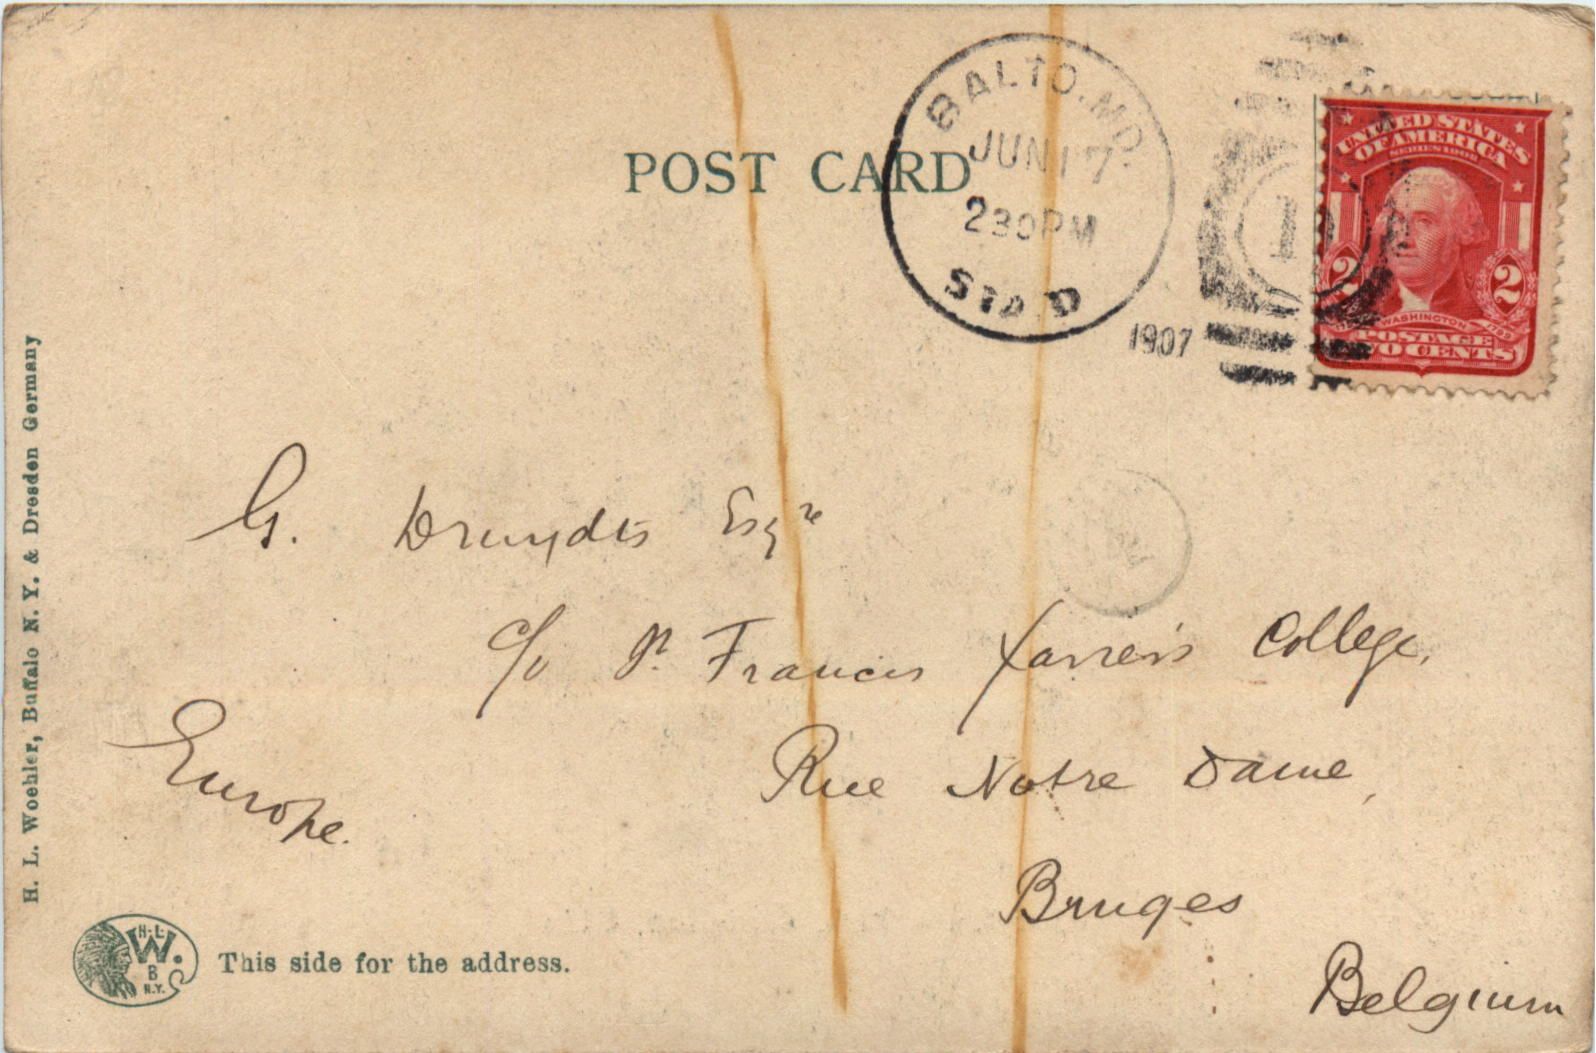 POST CARD
BALTO. MD.
JUN 17
230PM
STA D
1907
1
UNITED STATES
OF AMERICA
SERIES 1902
2 2
WASHINGTON
POSTAGE
TWO CENTS
G. Druydts Esqre
c/o St. Francis Xavier's College,
Rue Notre Dame,
Bruges
Belgium
Europe.
H. L. Woehler, Buffalo N. Y. & Dresden Germany
H. L.
W.
B
N.Y.
This side for the address.